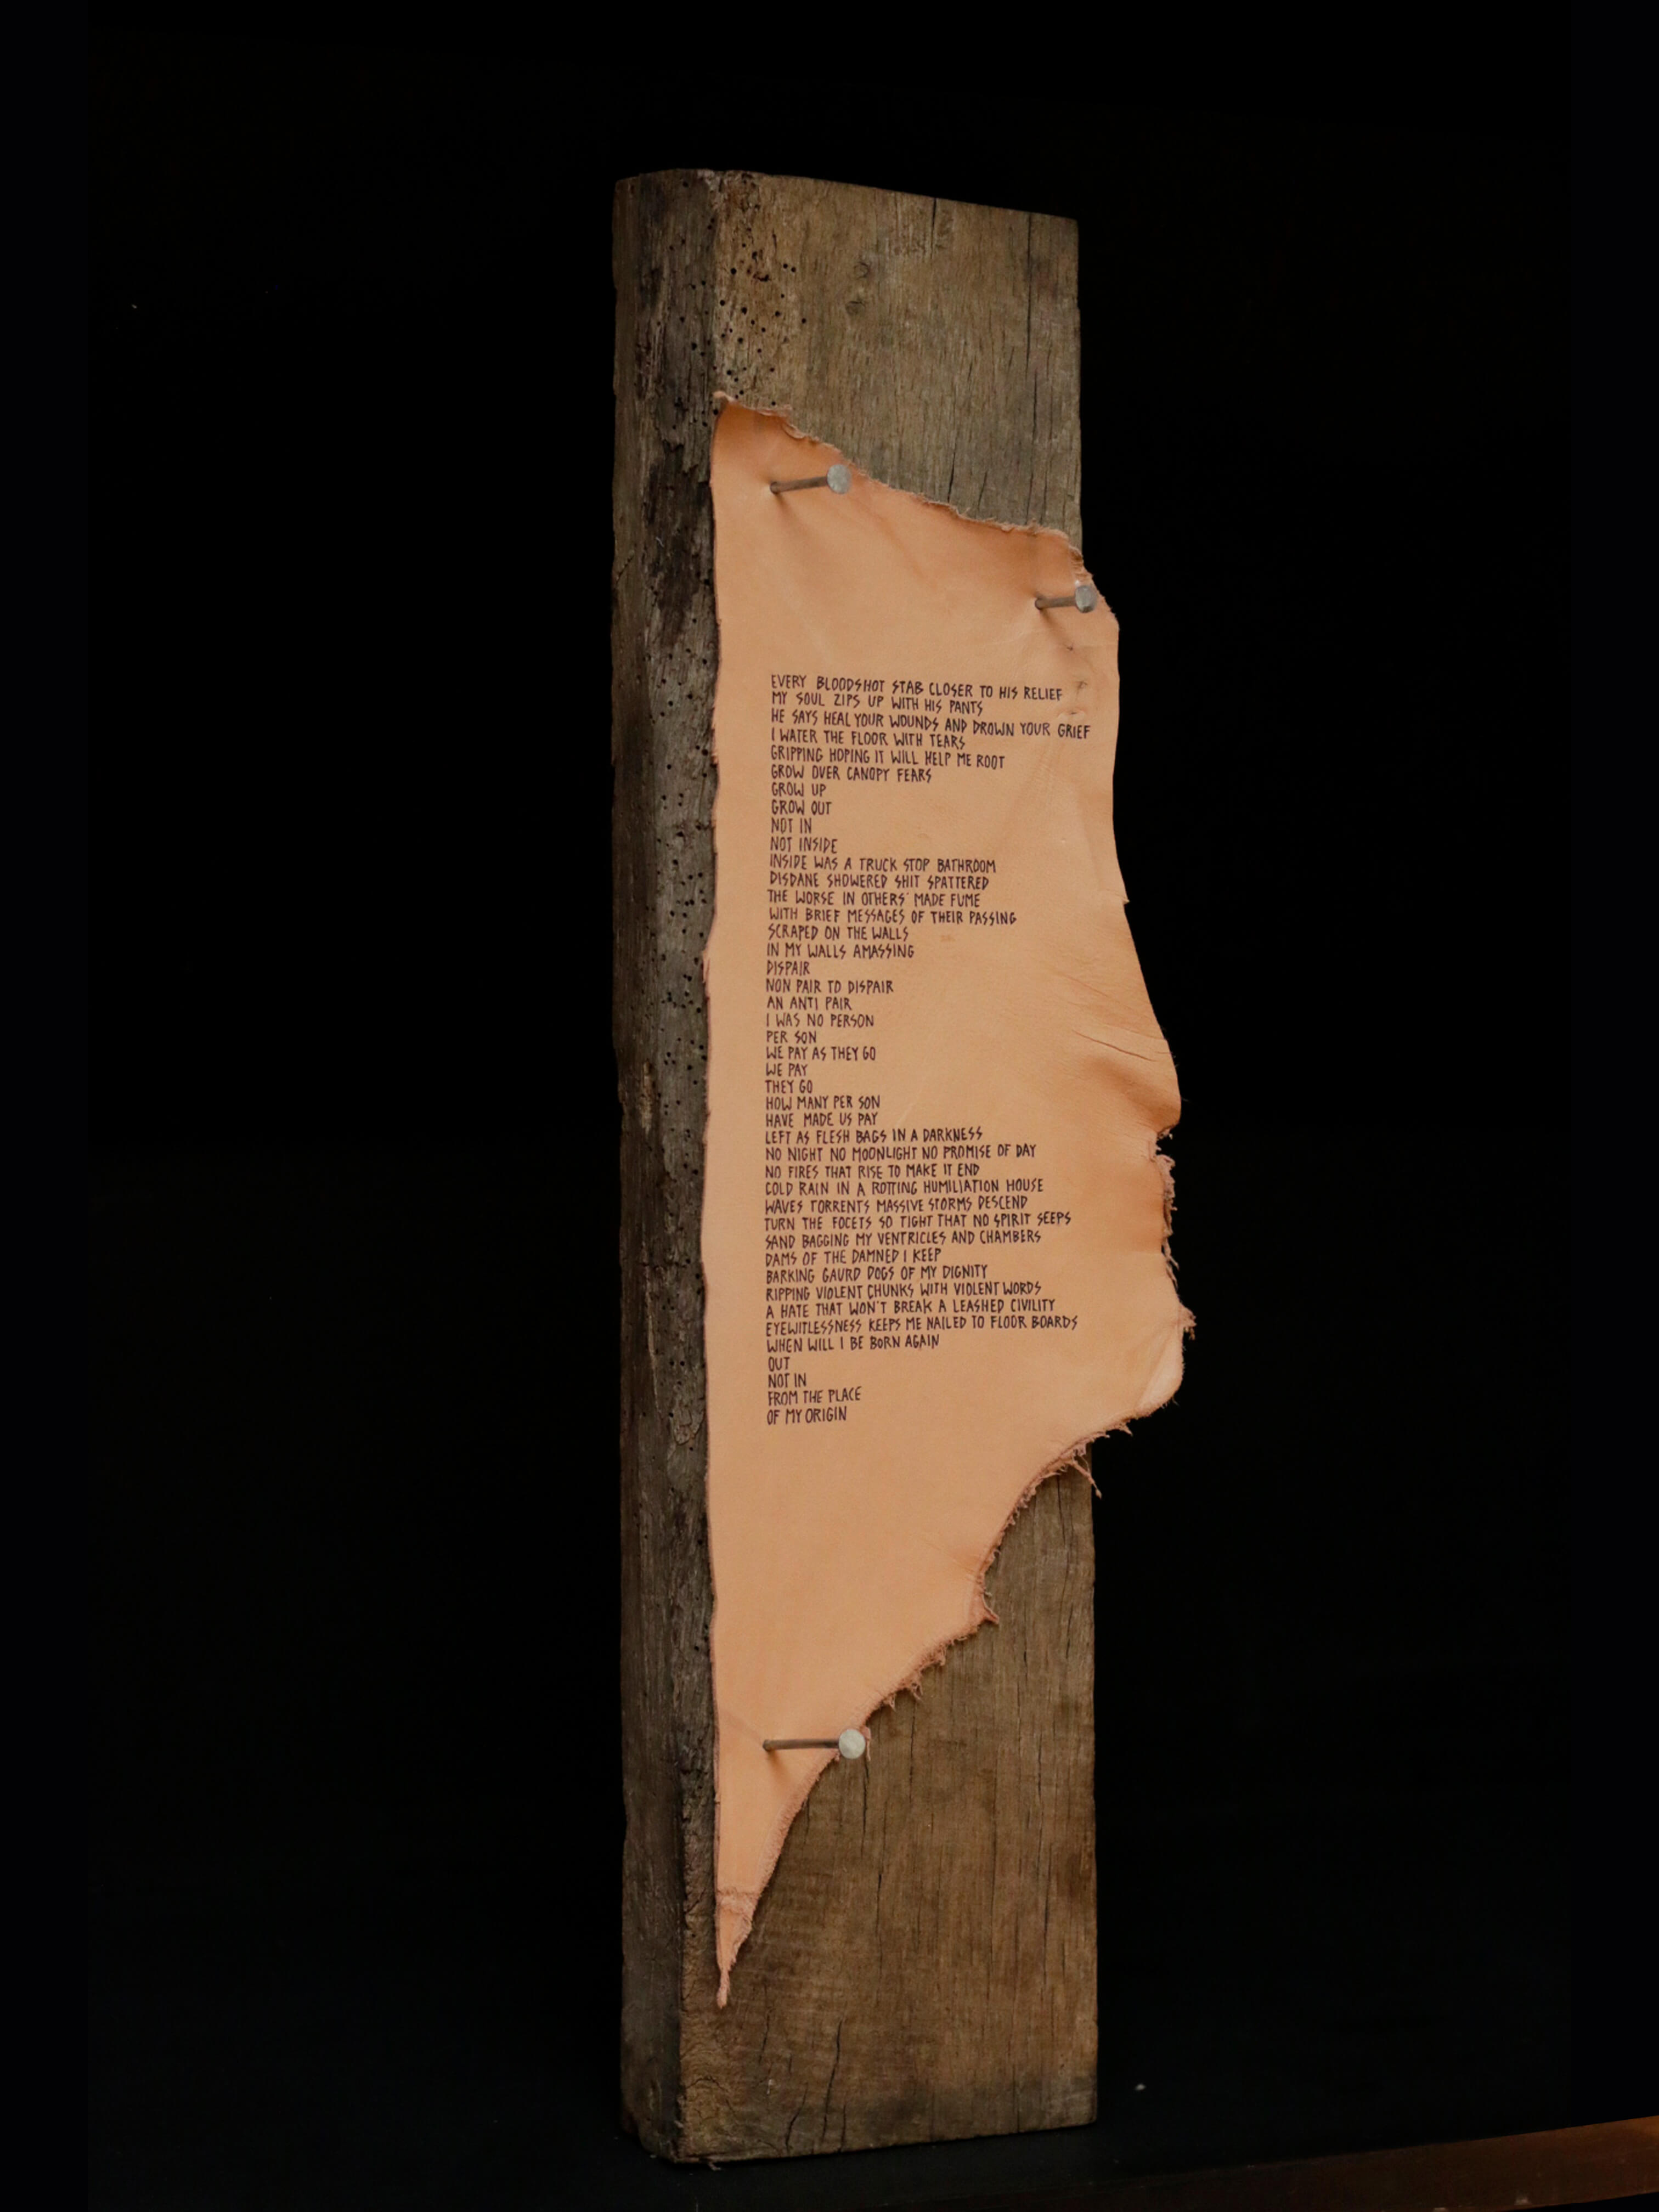 EVERY BLOODSHOT STAB CLOSER TO HIS RELIEF
MY SOUL ZIPS UP WITH HIS PANTS
HE SAYS HEAL YOUR WOUNDS AND DROWN YOUR GRIEF
I WATER THE FLOOR WITH TEARS
GRIPPING HOPING IT WILL HELP ME ROOT
GROW OVER CANOPY FEARS
GROW UP
GROW OUT
NOT IN
NOT INSIDE
INSIDE WAS A TRUCK STOP BATHROOM
DISDANE SHOWERED SHIT SPATTERED
THE WORSE IN OTHERS' MADE FUME
WITH BRIEF MESSAGES OF THEIR PASSING
SCRAPED ON THE WALLS
IN MY WALLS AMASSING
DISPAIR
NON PAIR TO DISPAIR
AN ANTI PAIR
I WAS NO PERSON
PER SON
WE PAY AS THEY GO
WE PAY
THEY GO
HOW MANY PER SON
HAVE MADE US PAY
LEFT AS FLESH BAGS IN A DARKNESS
NO NIGHT NO MOONLIGHT NO PROMISE OF DAY
NO FIRES THAT RISE TO MAKE IT END
COLD RAIN IN A ROTTING HUMILIATION HOUSE
WAVES TORRENTS MASSIVE STORMS DESCEND
TURN THE FOCETS SO TIGHT THAT NO SPIRIT SEEPS
SAND BAGGING MY VENTRICLES AND CHAMBERS
DAMS OF THE DAMNED I KEEP
BARKING GAURD DOGS OF MY DIGNITY
RIPPING VIOLENT CHUNKS WITH VIOLENT WORDS
A HATE THAT WON'T BREAK A LEASHED CIVILITY
EYEWITLESSNESS KEEPS ME NAILED TO FLOOR BOARDS
WHEN WILL I BE BORN AGAIN
OUT
NOT IN
FROM THE PLACE
OF MY ORIGIN